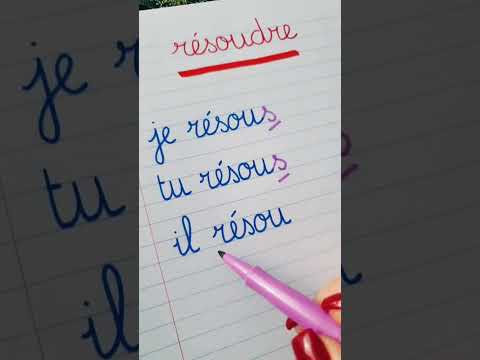 résoudre
je résous
tu résous
il résou